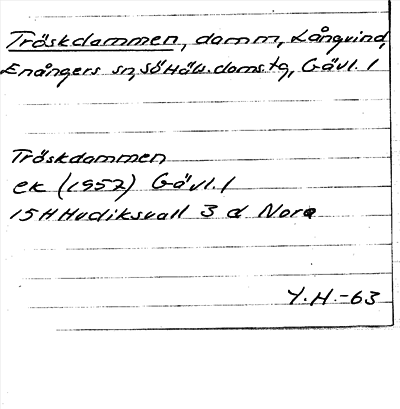 Tröskdammen, damm, Långvind,
Enångers sn, Sö Häls. doms. tg, Gävl. l
Tröskdammen
ek (1952) Gävl. l
15H Hudiksvall 3 d Nora
Y.H.-63